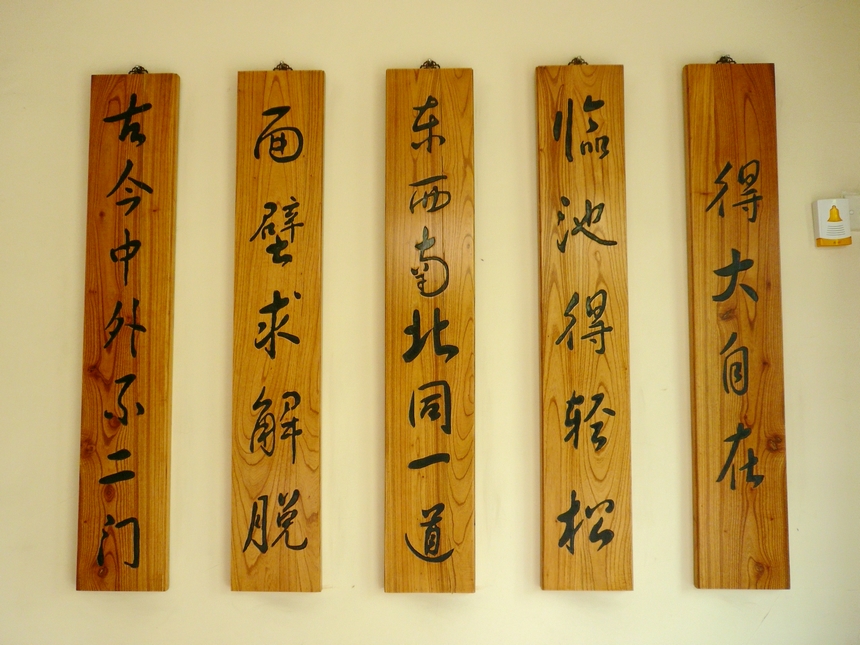 得大自在
临池得轻松
东西南北同一道
面壁求解脱
古今中外不二门